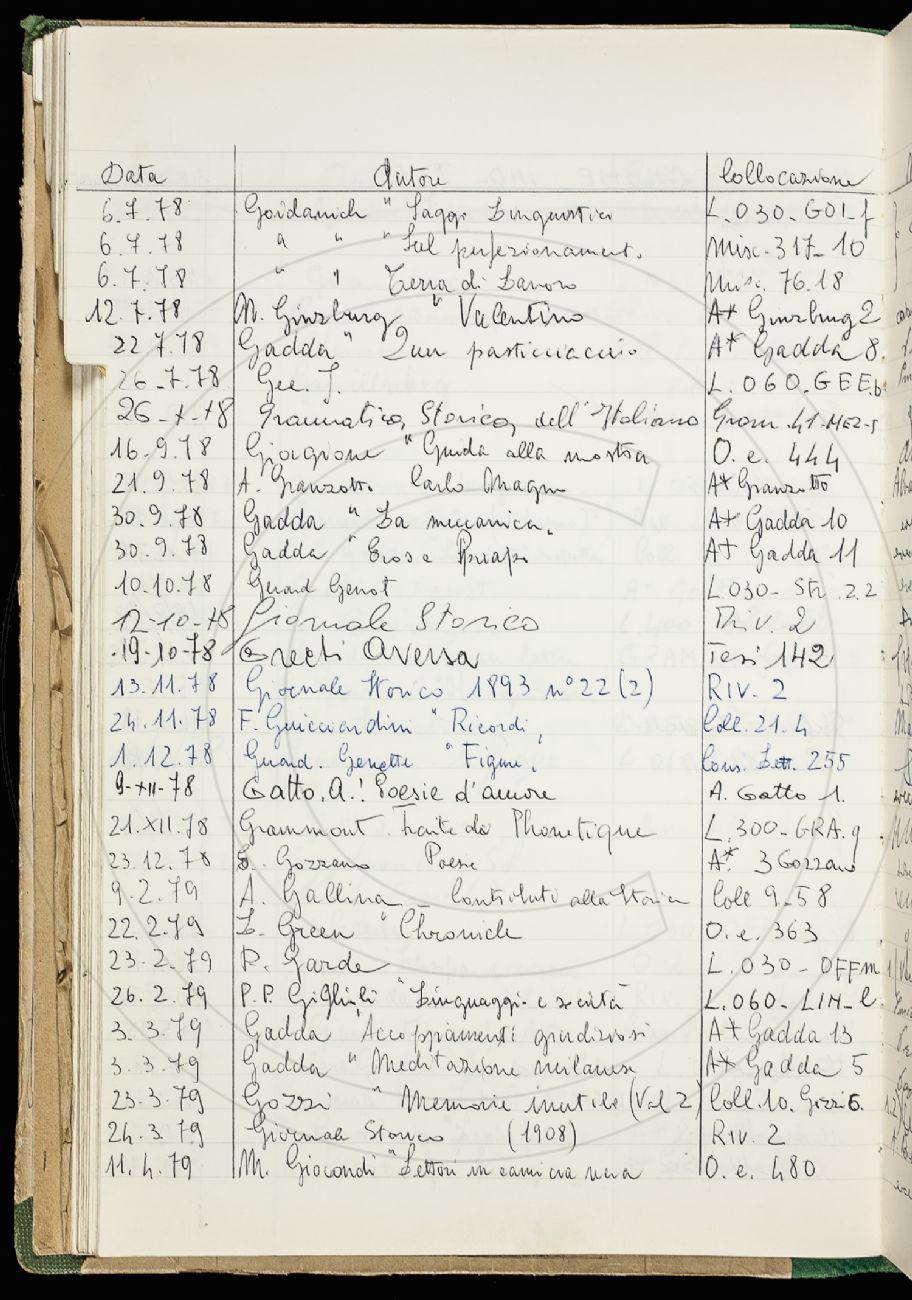 Data Autore Collocazione
6.7.78 Goidanich " Saggi Linguistici L.030-GOI-f
6.7.78 " " " Sul perfezionament. Misc. 317-10
6.7.78 " " Terra di Lavoro Misc. 76.18
12.7.78 Ginzburg " Valentino A* Ginzburg 2
22.7.78 Gadda " Quer pasticciaccio A* Gadda 8.
26.7.78 Gee. J. L.060.GEE.b
26-X-78 Grammatica Storica dell'Italiano Gram.41-MEZ-s
16.9.78 Giorgione " Guida alla mostra O.e. 444
21.9.78 A. Granzotto Carlo Magno A* Granzotto
30.9.78 Gadda " La meccanica " A* Gadda 10
30.9.78 Gadda " Eros e Priapo " A* Gadda 11
10.10.78 Gerard Genot L030- Str. 2.2
12-10-78 Giornale Storico Riv. 2
19-10-78 Grechi Aversa Tesi 142
13.11.78 Giornale Storico 1893 n° 22 (2) RIV. 2
24.11.78 F. Guicciardini " Ricordi " Coll. 21.4
1.12.78 Gerard. Genette " Figure " Cons. Lett. 255
9-XII-78 Gatto, A.: Poesie d'amore A. Gatto 1.
21.XII.78 Grammont. Traité de Phonetique L.300-GRA.g
23.12.78 G. Gozzano Poesie A* 3 Gozzano
9.2.79 A. Gallina - Contributi alla Storia Coll 9-58
22.2.79 L. Green " Chronicle O.e. 363
23.2.79 R. Garde L.030-OFFm
26.2.79 P.P. Giglioli " Linguaggio e società L.060-LIN-l
3.3.79 Gadda " Accoppiamenti giudiziosi A* Gadda 13
3.3.79 Gadda " Meditazione milanese A* Gadda 5
23.3.79 Gozzi " Memorie inutile (Vol 2) Coll.10. Gozzi 6.
24.3.79 Giornale Storico (1908) Riv. 2
11.4.79 M. Giocondi " Lettori in camicia nera O.e. 480